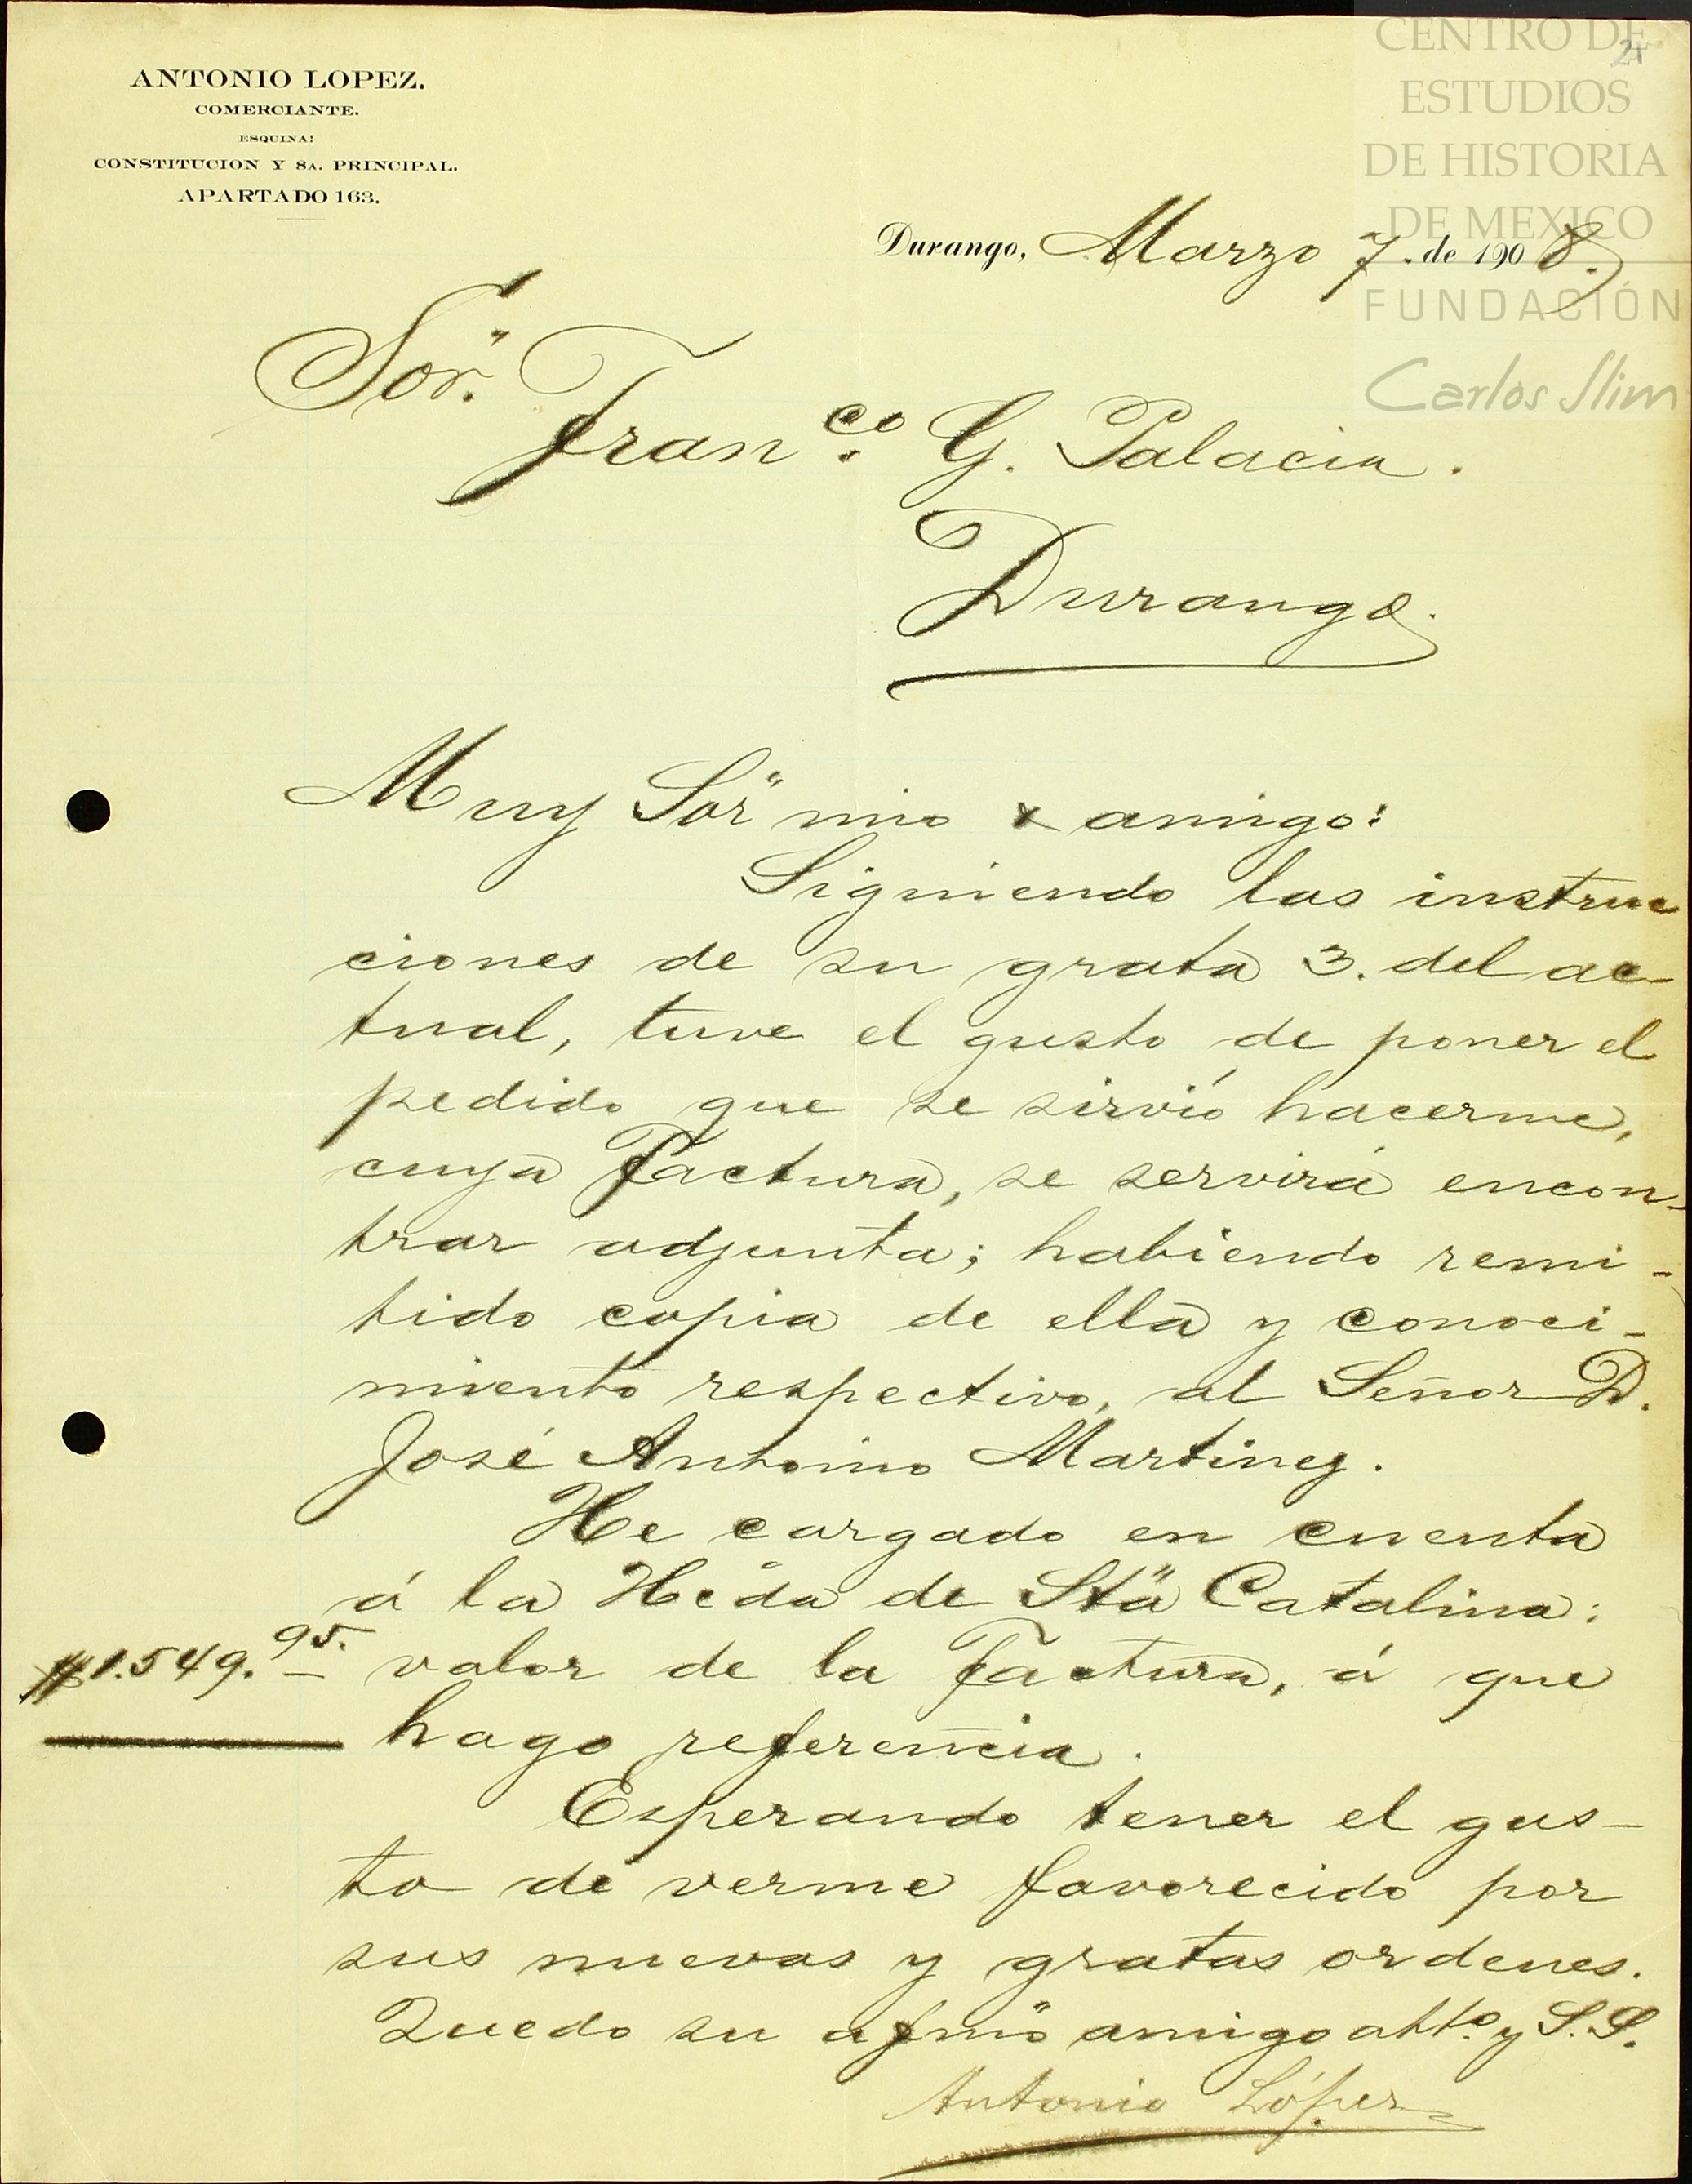 ANTONIO LOPEZ.
COMERCIANTE.
ESQUINA:
CONSTITUCION Y 8A. PRINCIPAL.
APARTADO 163.
CENTRO DE
ESTUDIOS
DE HISTORIA
DE MEXICO
FUNDACIÓN
Carlos Slim
Durango, Marzo 7. de 1908.
Sor.
Franco. G. Palacia.
Durango.
Muy Sor mio & amigo:
Siguiendo las instruc
ciones de su grata 3. del ac
tual, tuve el gusto de poner el
pedido que se sirvió hacerme,
cuya Factura, se servirá encon-
trar adjunta; habiendo remi-
tido copia de ella y conoci-
miento respectivo, al Señor D.
José Antonio Martinez.
He cargado en cuenta
á la Hcda de Sta Catalina:
$1.549.95. valor de la Factura, á que
hago referencia.
Esperando tener el gus-
to de verme favorecido por
sus nuevas y gratas ordenes.
Quedo su afmo amigo atto. y S.S.
Antonio López